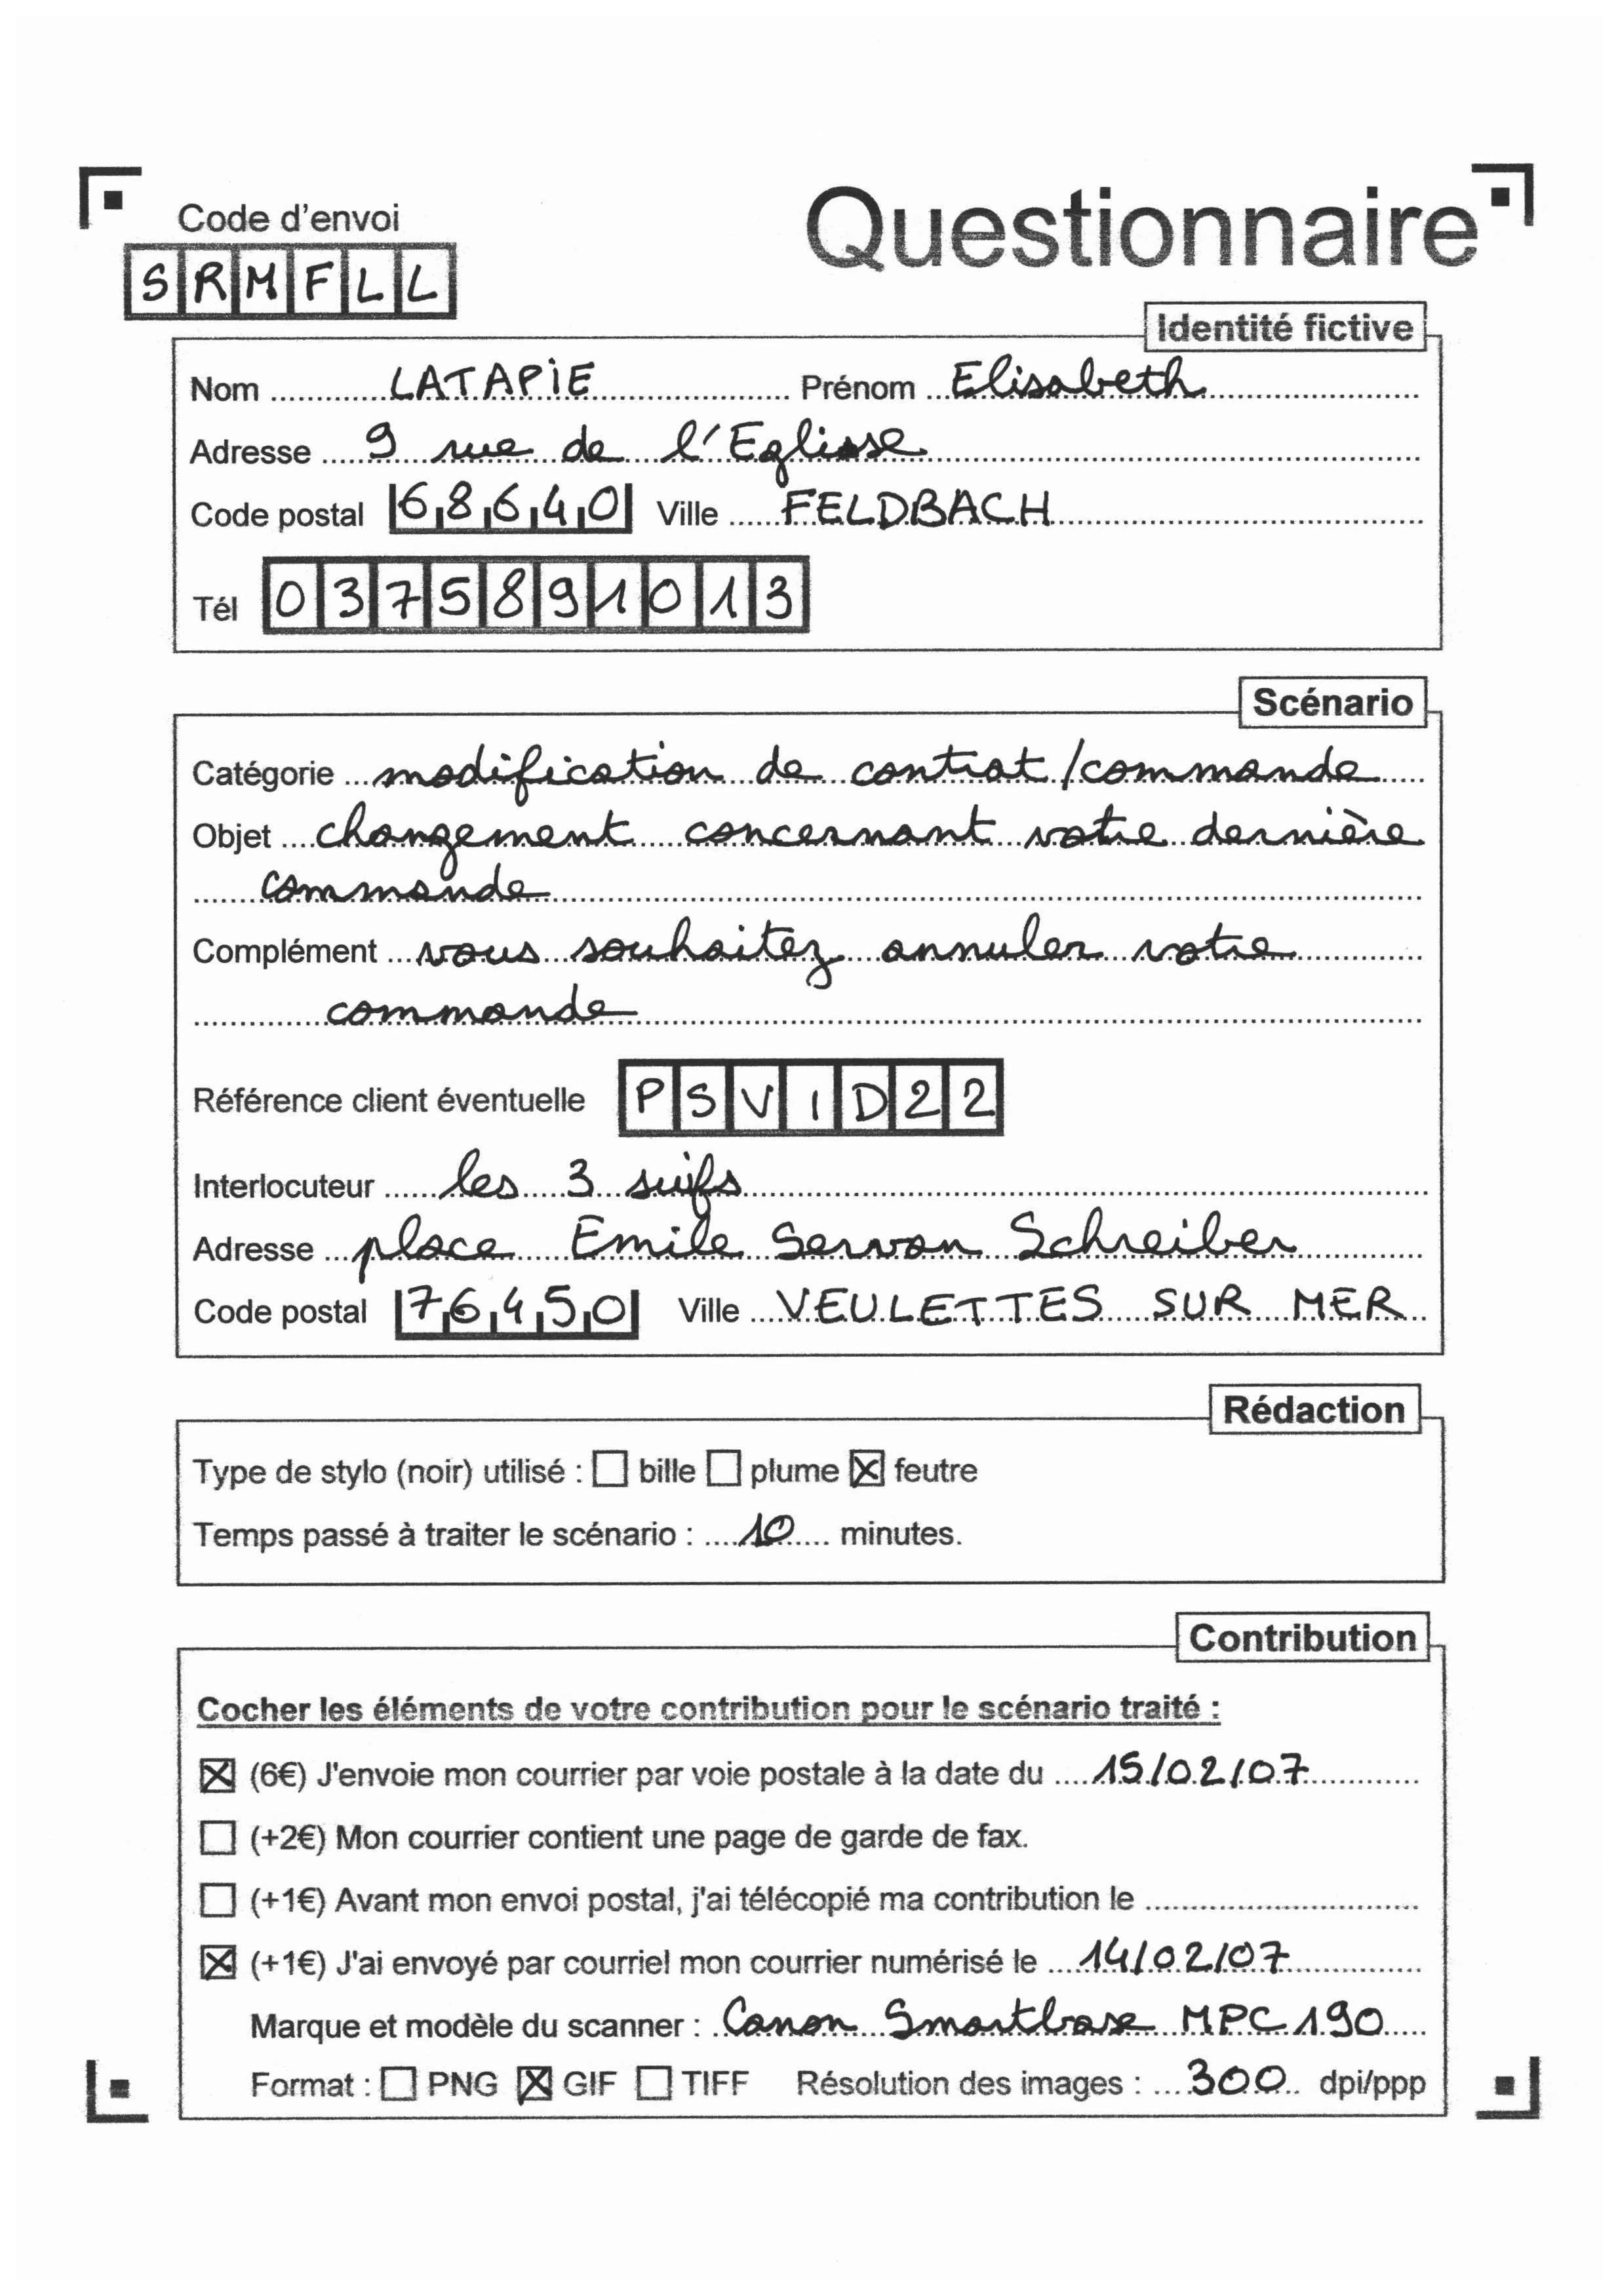 Code d'envoi
Questionnaire
SRMFLL
Identité fictive
Nom LATAPIE Prénom Elisabeth
Adresse 9 rue de l'Eglise
Code postal 68640 Ville FELDBACH
Tél 0375891013
Scénario
Catégorie modification de contrat/commande
Objet changement concernant votre dernière
commande
Complément vous souhaitez annuler votre
commande
Référence client éventuelle PSVID22
Interlocuteur les 3 suifs
Adresse place Emile Servan Schreiber
Code postal 76450 Ville VEULETTES SUR MER
Rédaction
Type de stylo (noir) utilisé : ☐ bille ☐ plume ☒ feutre
Temps passé à traiter le scénario : 10 minutes.
Contribution
Cocher les éléments de votre contribution pour le scénario traité :
☒ (6€) J'envoie mon courrier par voie postale à la date du 15/02/07
☐ (+2€) Mon courrier contient une page de garde de fax.
☐ (+1€) Avant mon envoi postal, j'ai télécopié ma contribution le
☒ (+1€) J'ai envoyé par courriel mon courrier numérisé le 14/02/07
Marque et modèle du scanner : Canon Smartbase MPC 190
Format : ☐ PNG ☒ GIF ☐ TIFF Résolution des images : 300 dpi/ppp